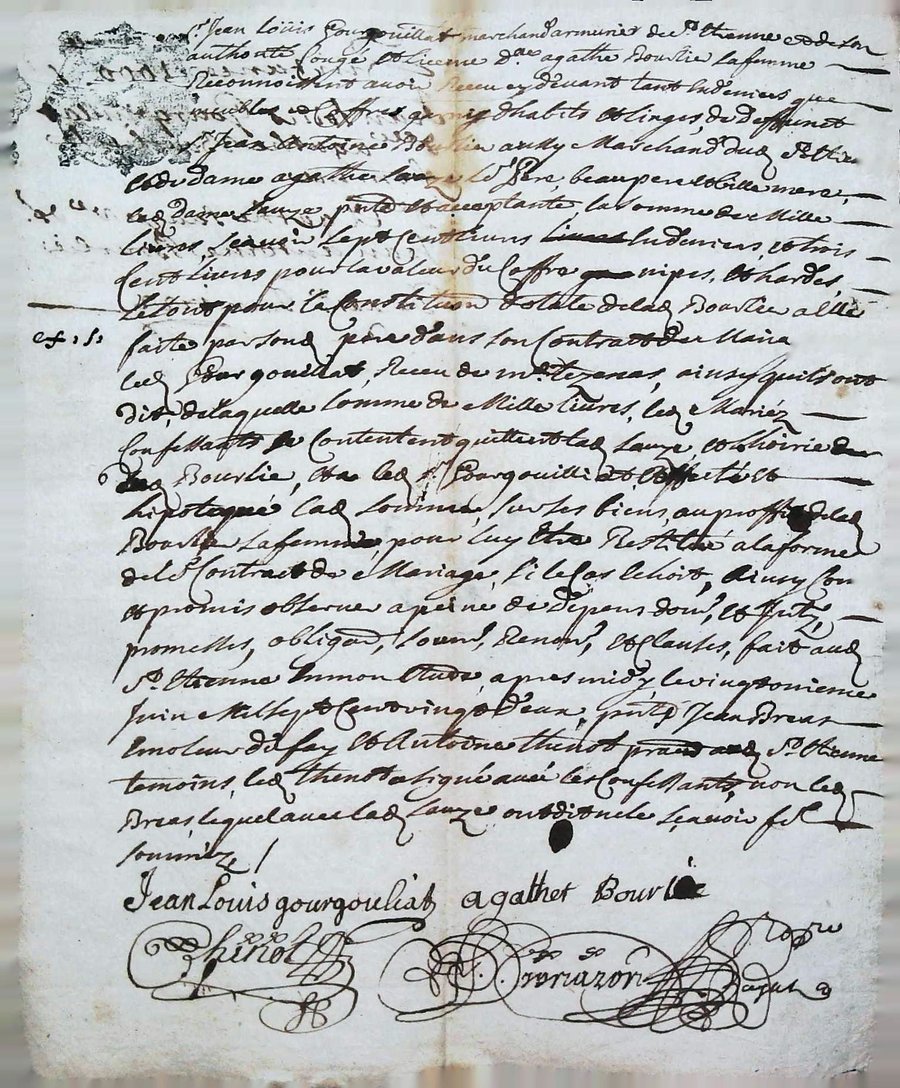 Sr Jean Loüis Gourgouillat marchand armurier de St Etienne et de son
authorité Congé et licence dlle agathe Bourlie sa femme
Reconnoissent avoir Receu cy devant tant en deniers que
meubles et Coffres garnis d'habits et linges, de deffunct
Sr Jean Antoine Bourlie aussy Marchand dud St Etie
et de dame agathe Sauze Ls Pere, beaupere et belle mere,
lad dame Sauze pnte et acceptante, la somme de Mille
livres, sçavoir sept Cent livres en deniers, et trois
Cent livres pour la valeur du Coffre nipes, et hardes,
Le tout pour la Constitution dotale de lad Bourlie a elle
ex. s.
faite par sond pere dans son Contract de Maria
led Gourgouillat, Receu de me tezenas, ainsy qu'ils ont
dit, de laquelle somme de Mille livres, led Mariéz
Confessants se Contentent quittent lad Sauze, et l'hoirie de
Bourlie, et a led Sr Gourgouilli affecté et
hipotequé lad somme, sur ses biens, au proffit de lad
Bourlie sa femme, pour luy etre Restitué a la forme
de Ls Contract de Mariage, si le Cas echoit, ainsy Con
et promis observer a peine de depens dom, et Jntz,
promesses, obligad, soum, Renon, et Clauses, fait aud
St Etienne en mon Etude, apres midy le vingt onieme
Juin Mil sept Cent vingt deux, pnts Jean Breas
Emoleur et Antoine thenot St Etienne
temoins, led thenot a signé avec les Confessants, non led
Breas lequel avec lad Sauze ont dit ne le sçavoir
Jean Louis gourgouliat agathet Bourlie